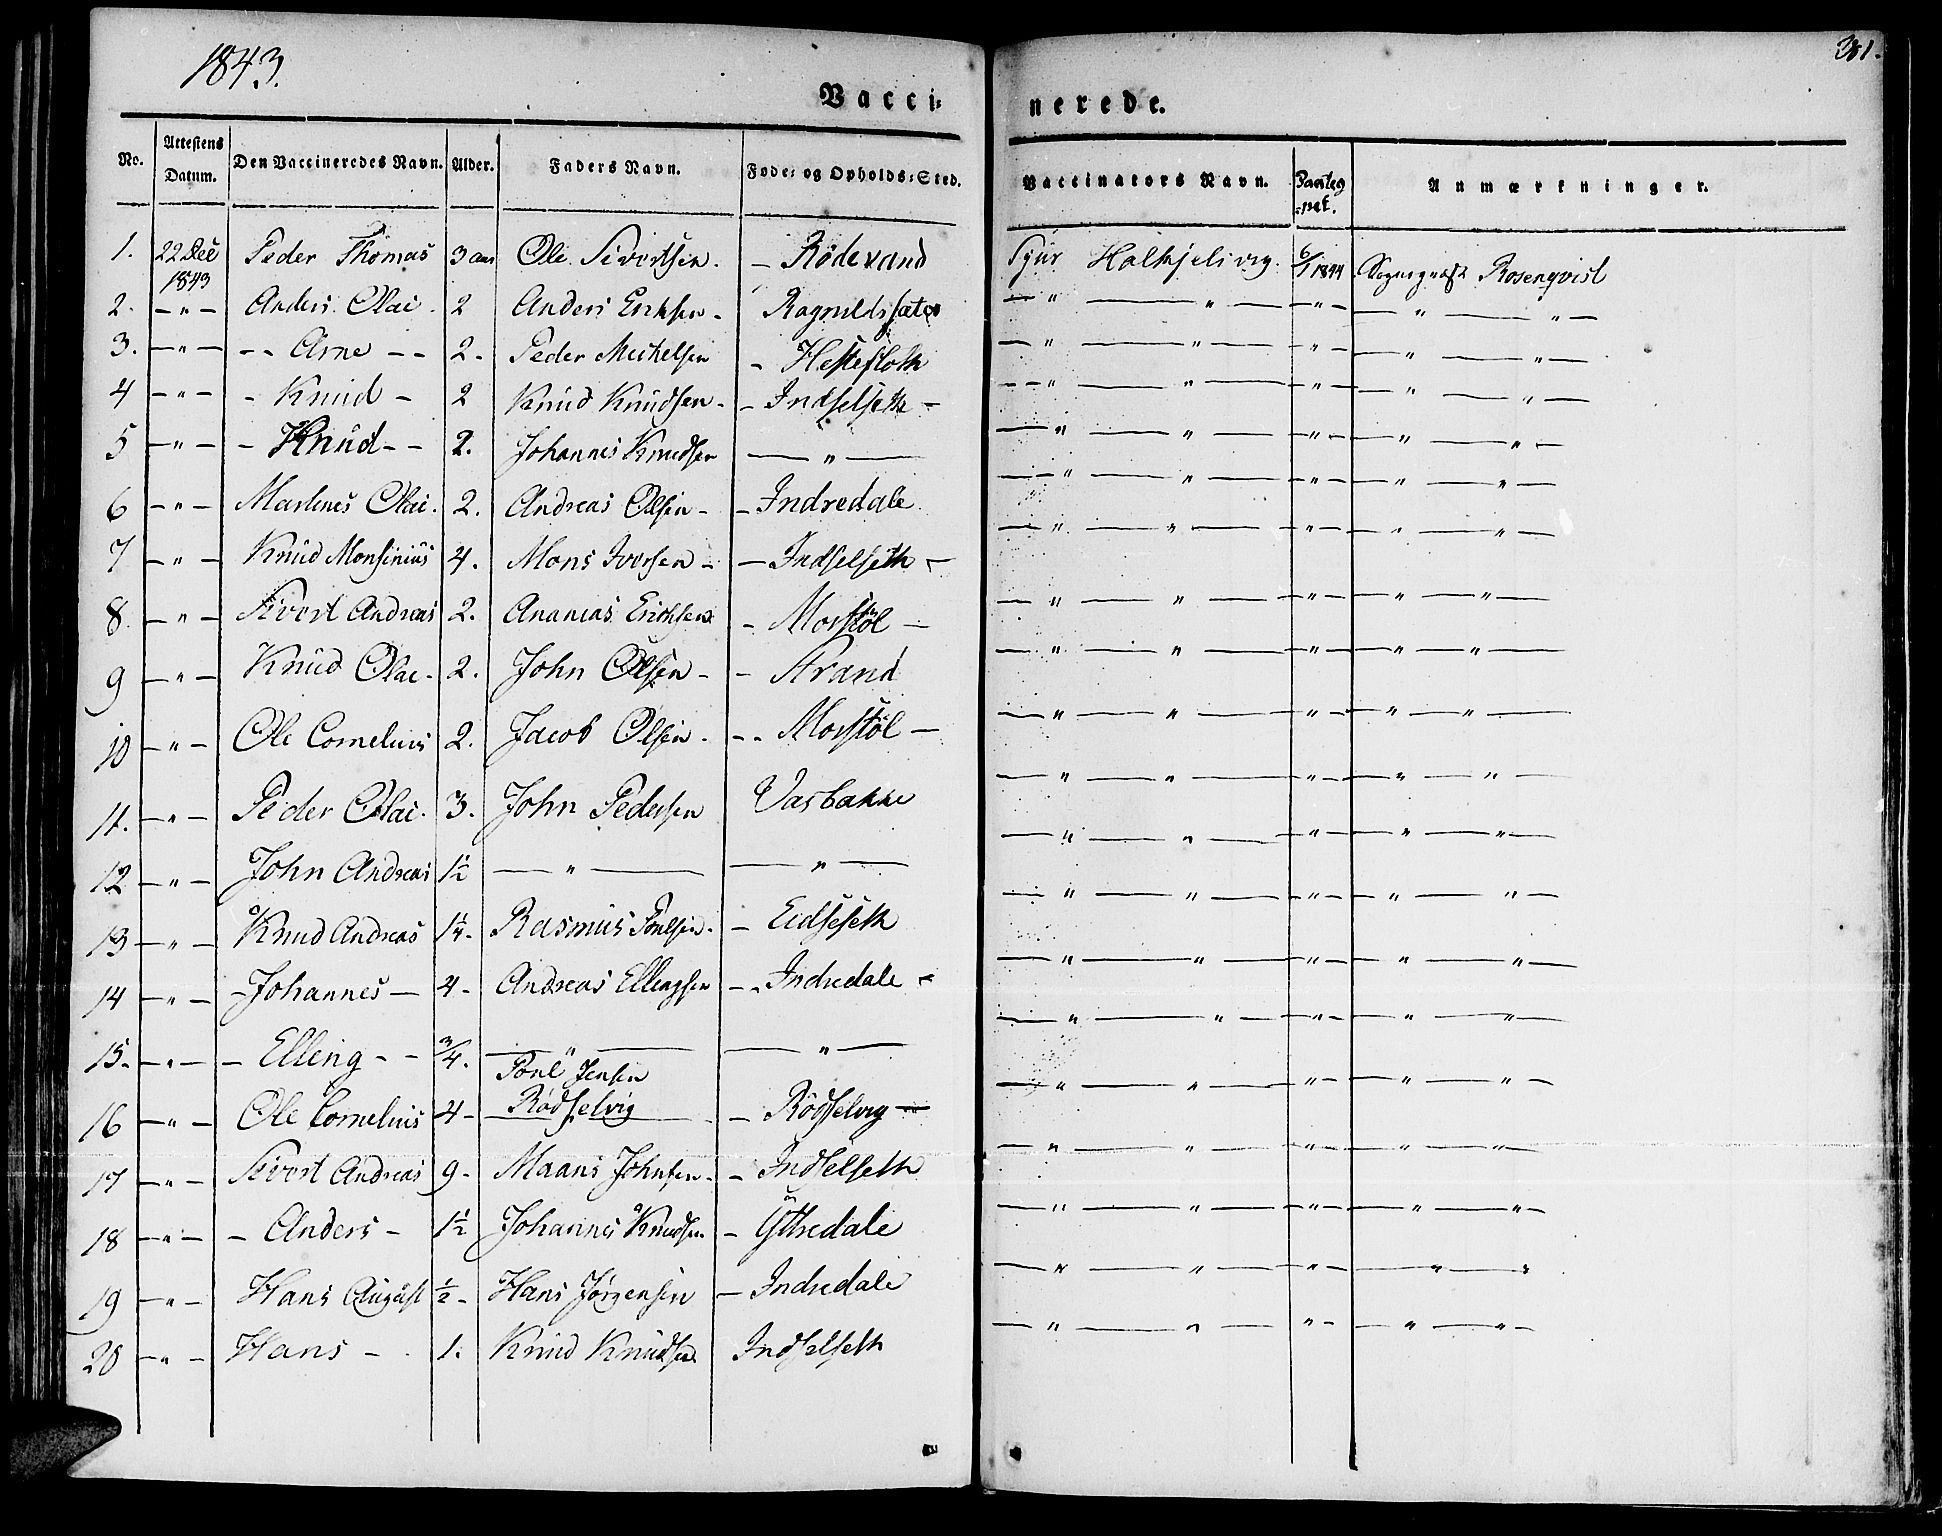 1843.
381.
Vacci-
nerede.
No. | Attestens Datum. | Den Vaccineredes Navn. | Alder. | Faders Navn. | Føde- og Opholds-Sted. | Vaccinators Navn. | Paateg net. | Anmærkninger.
1. | 22 Dec 1843 | Peder Thomas | 3 aar | Ole Sivertsen. | - Rödevand | Sjur Halkjelsvig. | 6/1 1844 | Rosenqvist
2. | - " - | Anders Olai. | 2 | Anders Eriksen - | Ragnildssæter | - " - " - | - " - | - " - " -
3. | - " - | - - Arne - - | 2. | Peder Mickelsen | - Hestefloth | - " - " - | - " - | - " - " -
4 | - " - | - Knud - | 2 | Knud Knudsen - | - Indselseth - | - " - " - | - " - | - " - " -
5 | - " - | - Knud - - | 2. | Johannes Knudsen | - " - | - " - " - | - " - | - " - " -
6 | - " - | Martines Olai. | 2. | Andreas Olsen - | - Indredale | - " - " - | - " - | - " - " -
7 | - " - | Knud Monsinius | 4. | Mons Iversen - | - Indselseth - | - " - " - | - " - | - " - " -
8. | - " - | Sivert Andreas | 2. | Ananias Erichsen | - Morstöl - | - " - " - | - " - | - " - " -
9 | - " - | Knud Olai - | 2. | John Olsen - | - Strand | - " - " - | - " - | - " - " -
10 | - " - | Ole Cornelius | 2. | Jacob Olsen. | - - Morstöl - | - " - " - | - " - | - " - " -
11. | - " - | Peder Olai. | 3. | John Pedersen | Vasbakke | - " - " - | - " - | - " - " -
12 | - " - | John Andreas | 1½ | - " - | - " - | - " - " - | - " - | - " - " -
13 | - " - | Knud Andreas | 1¼. | Rasmus Poulsen. | - Eidseseth | - " - " - | - " - | - " - " -
14 | - " - | - Johannes - | 4. | Andreas Ellingsen | - - Indredale - | - " - " - | - " - | - " - " -
15. | - " - | - Elling - - | 3/4. | - " - | - " - | - " - " - | - " - | - " - " -
16 | - " - | Ole Cornelius | 4 - | Poul Jensen Rödselvig | - Rödselvig - | - " - " - | - " - | - " - " -
17 | - " - | Sivert Andreas | 9 - | Maans Johnsen. | - Indselseth | - " - " - | - " - | - " - " -
18 | - " - | - Anders - | 1½ | Johannes Knudsen | - Ytredale | - " - " - | - " - | - " - " -
19 | - " - | Hans August | ½ - | Hans Jörgensen | - Indredale | - " - " - | - " - | - " - "
20 | - " - | Hans - . | 1. | Knud Knudsen | Indselseth | - " - " - | " - | - " - " -